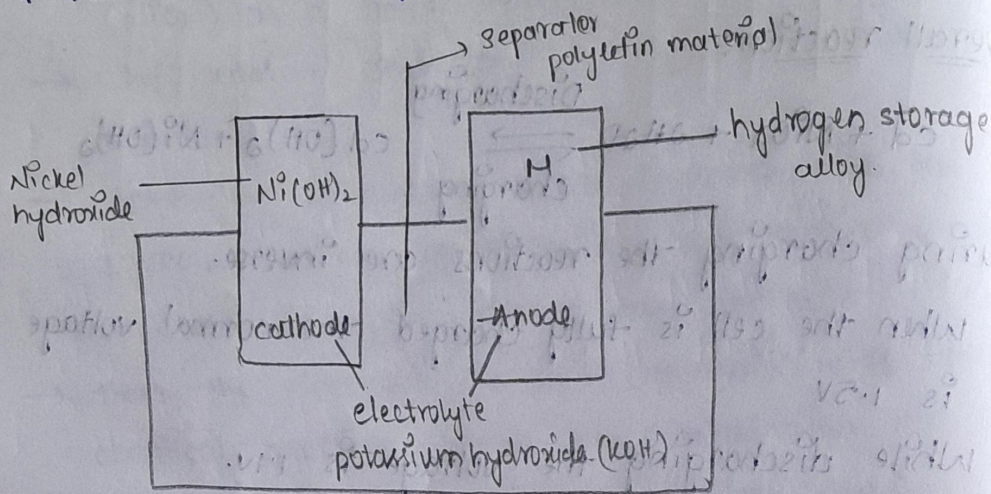 separator
polyelefin material
hydrogen storage
alloy.
Nickel
hydroxide
Ni(OH)2
M
cathode
Anode
electrolyte
potassium hydroxide (KOH)